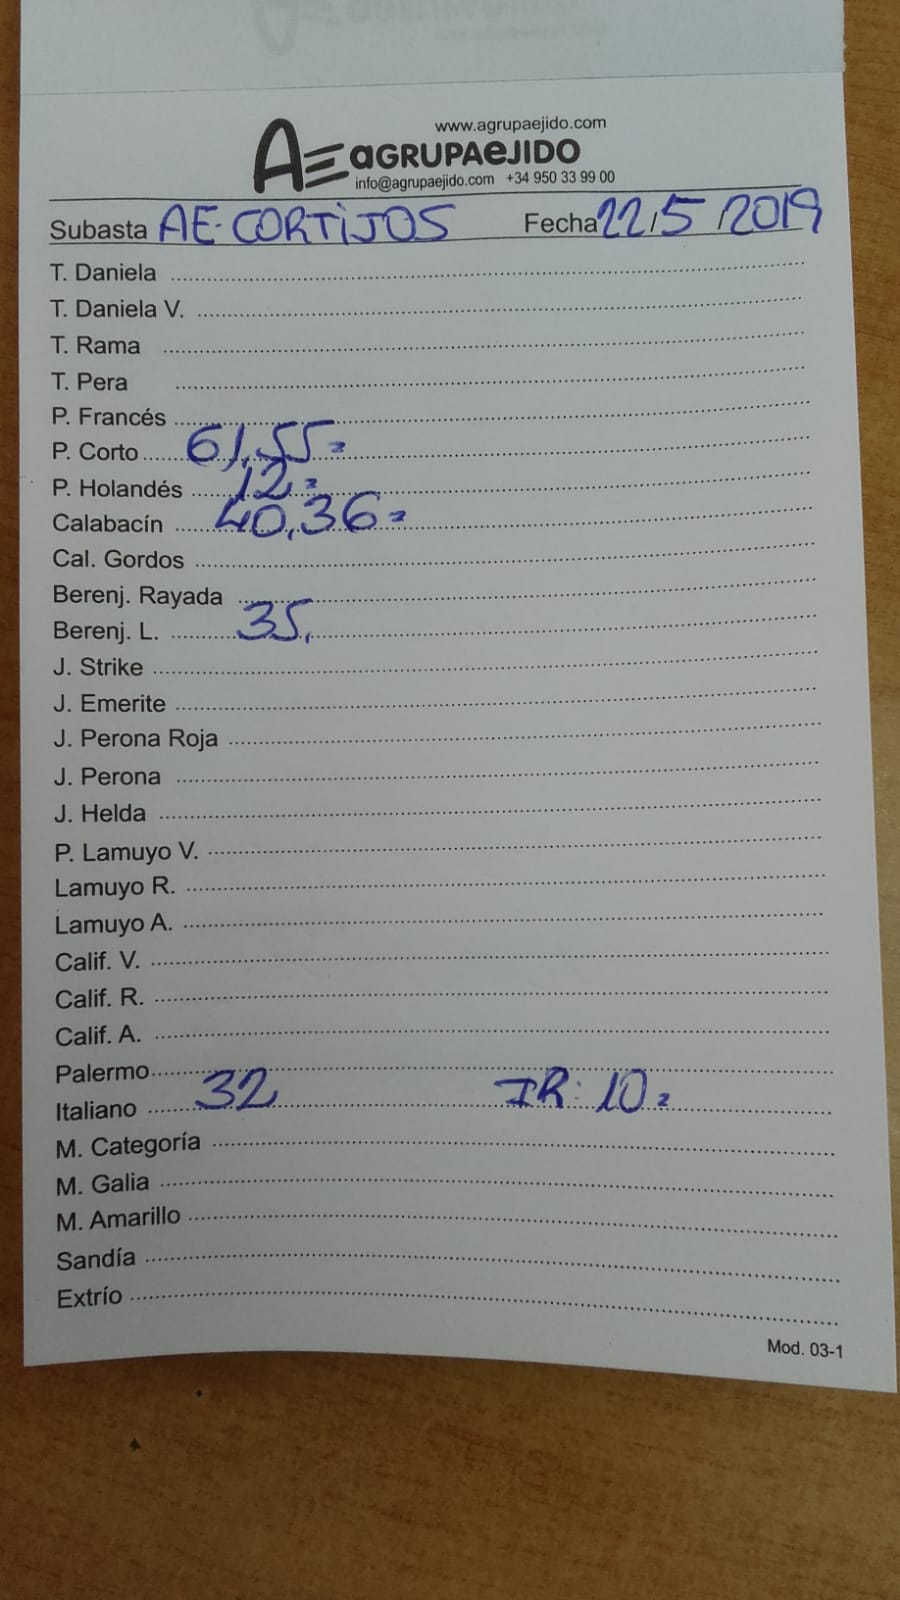 www.agrupaejido.com
AE aGRUPAeJIDO
info@agrupaejido.com +34 950 33 99 00
Subasta AE-CORTIJOS Fecha 22/5/2019
T. Daniela
T. Daniela V.
T. Rama
T. Pera
P. Francés
P. Corto 61,55=
P. Holandés 12=
Calabacín 40,36=
Cal. Gordos
Berenj. Rayada
Berenj. L. 35,
J. Strike
J. Emerite
J. Perona Roja
J. Perona
J. Helda
P. Lamuyo V.
Lamuyo R.
Lamuyo A.
Calif. V.
Calif. R.
Calif. A.
Palermo
Italiano 32 IR: 10=
M. Categoría
M. Galia
M. Amarillo
Sandía
Extrío
Mod. 03-1